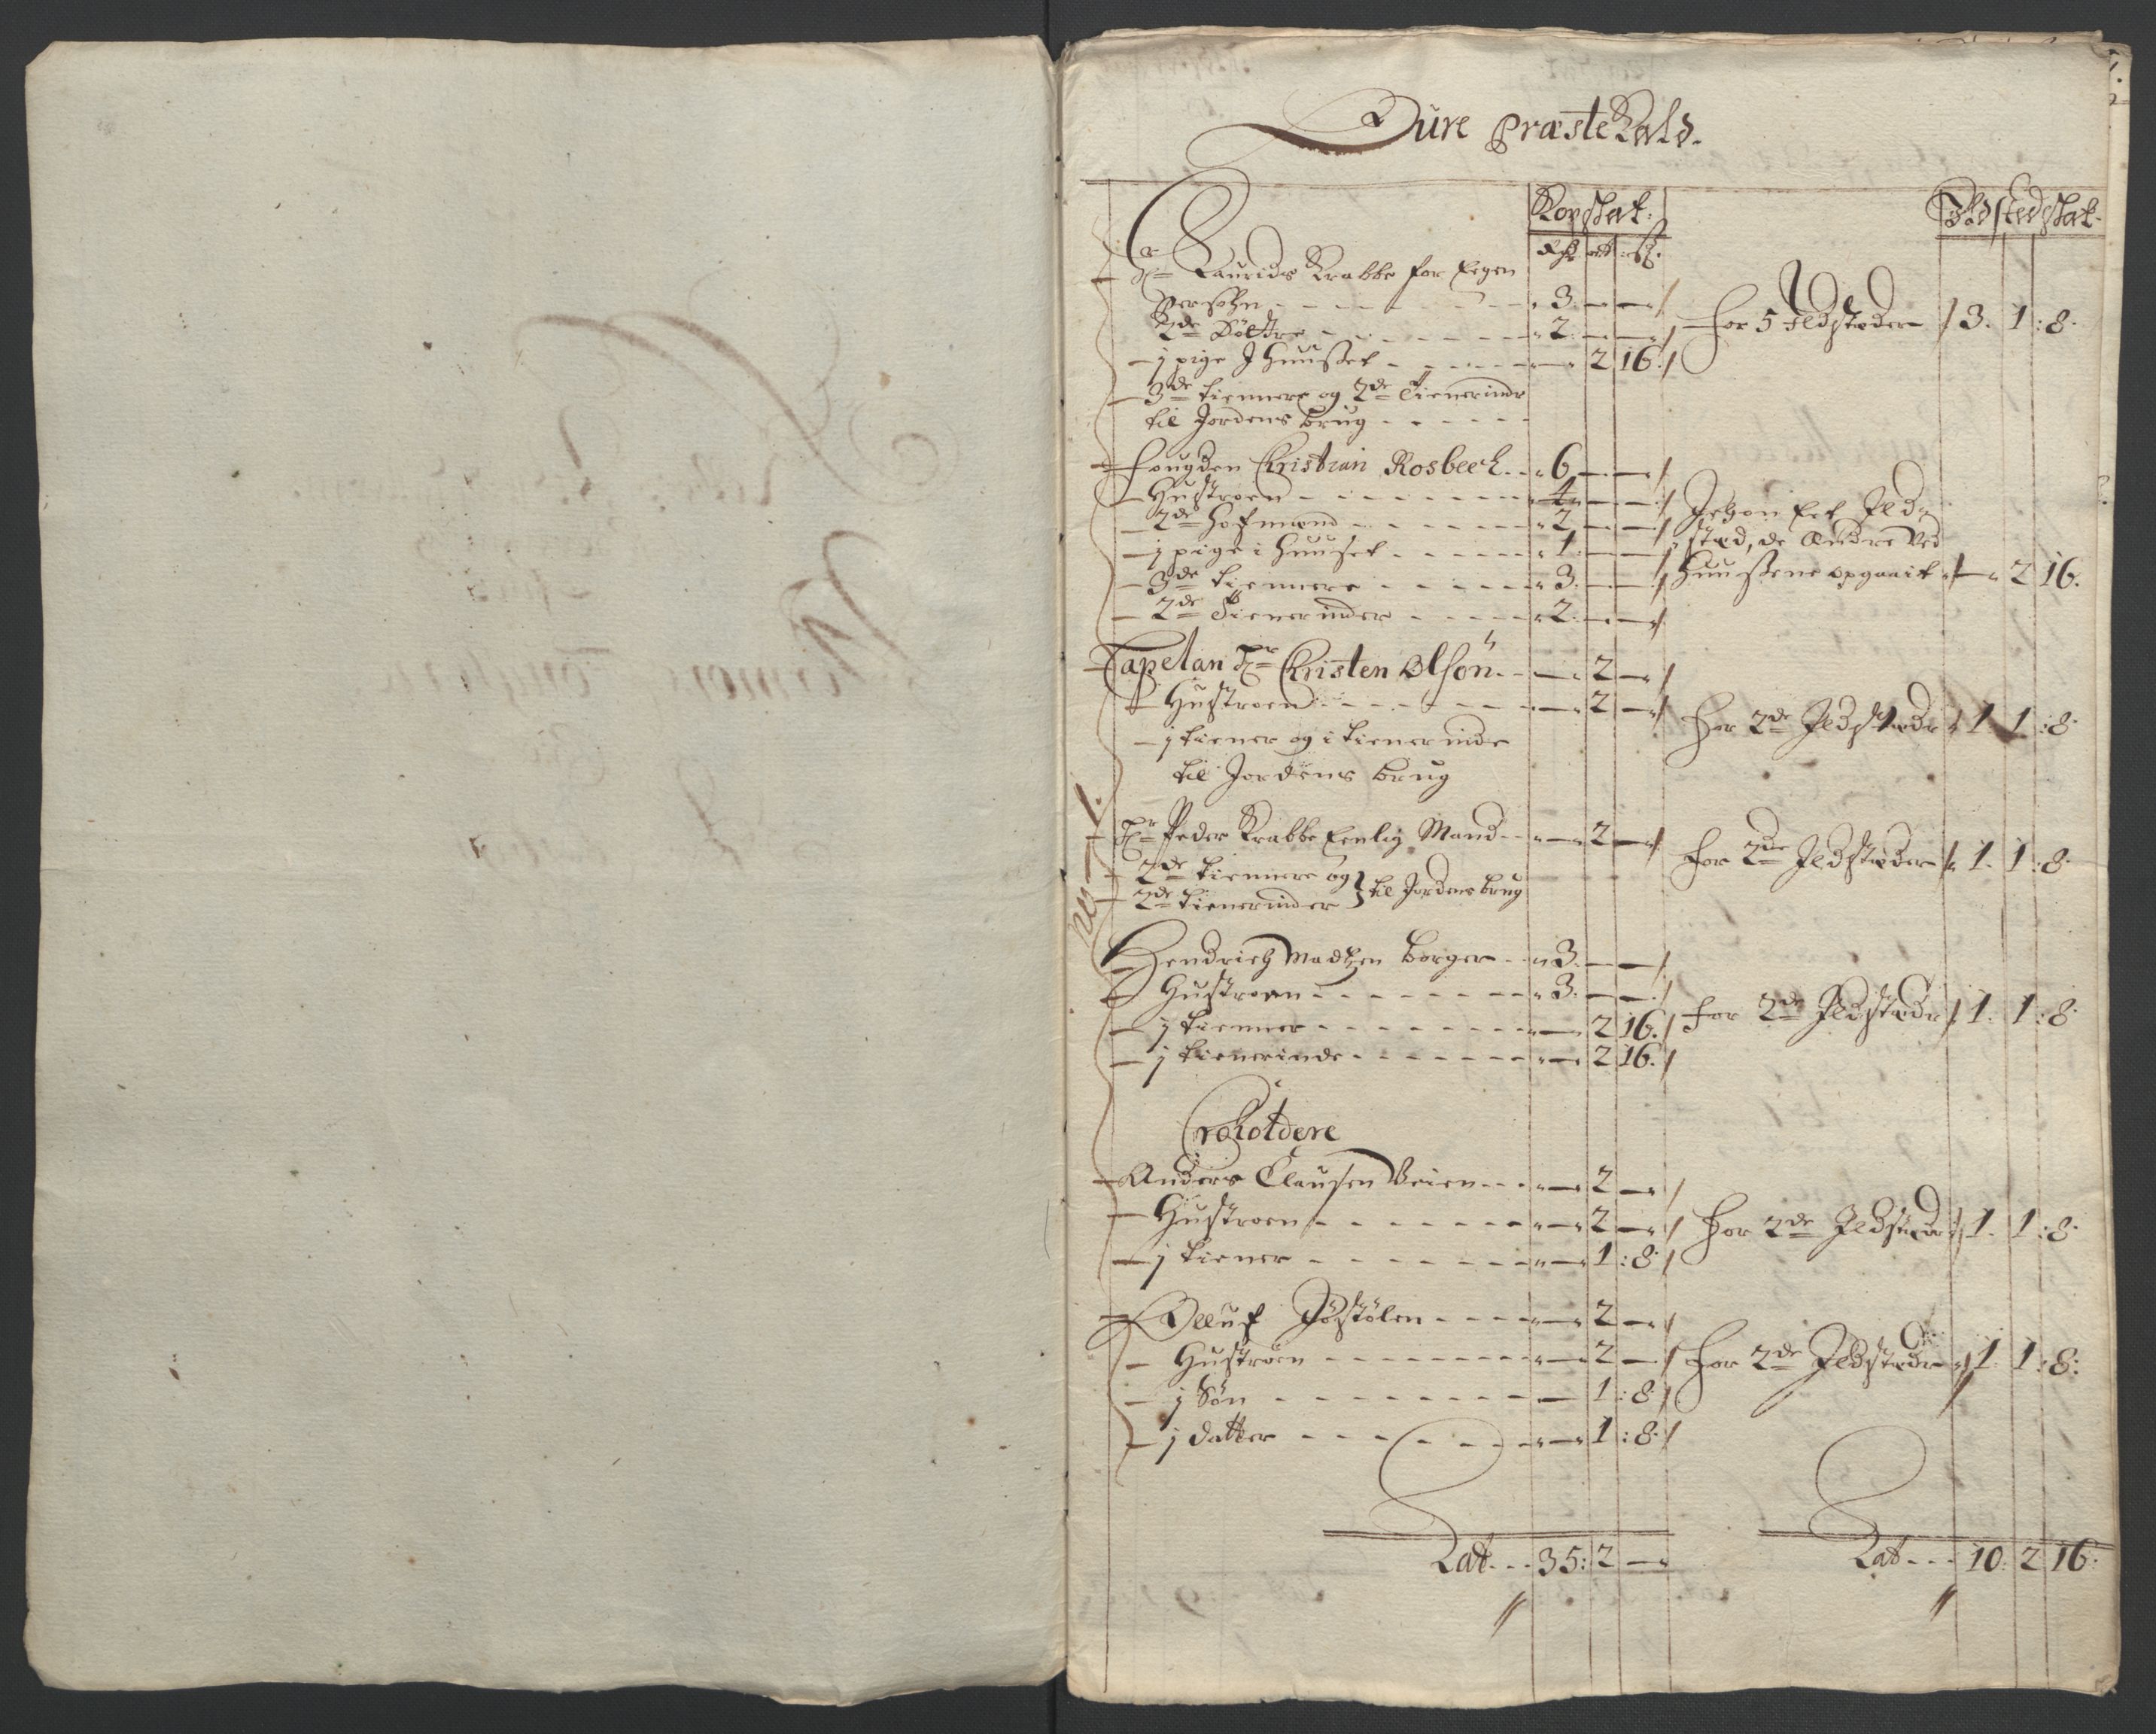 Düre præste Kald.
Kopskat: Ildstedskat.
Rdr ort sk.
Hr Laurids Krabbe for Eegen
Persohn - - - 3. — — / For 5 Ildstæder / 3. 1 : 8.
2de Døttre - - - 2. — — /
— 1 pige J Huusset - - - — 2 16. /
— 3de tiennere og 2de Tienerinder
til Jordens brug - - -
Fougden Christian Rosbech. - 6. — — /
— Hustroen - - - 4. — — /
— 2de Hofmænd - - - 2. — — /
Jtzon Eet Ild-
— 1 pige i Huuset - - - 1. — — /
stæd, de Andre Ved
— 3de tiennere - - - 3. — — /
Huussene opgaait — 2 16.
— 2de Tienerinder - - - 2. — — /
Capelan Hr Christen Olsön. - - — 2 — /
— Hustroen - - - — 2 — /
For 2de Ildstædr 1. 1 : 8.
— 1 tiener og 1 tienerinde
til Jordens brug
Hr Peder Krabbe Eenlig Mand - - — 2 — /
For 2de Ildstæder / 1. 1 : 8.
— 2de tiennere og
— 2de tienerinder } til Jordens brug
No 1.
Hendrich Madtzen borger - - 3. — — /
— Hustroen - - - 3. — — /
For 2de Ildstædr / 1. 1 : 8.
— 1 tienner - - - — 2 16. /
— 1 tienerinde - - - — 2 16. /
Croholdere
Anders Clausen Veien - - - — 2 — /
— Hustroen - - - — 2 — /
For 2de Ildstædr / 1. 1 : 8.
— 1 tiener - - - — 1 : 8 /
Olluf Jöstölen - - - — 2 — /
— Hustroen - - - — 2 — /
For 2de Ildstædr 1. 1 : 8.
— 1 Sön - - - — 1 : 8 /
— 1 datter - - - — 1 : 8 /
Lat. - - 35 : 2 —
Lat - - - 10. 2 16.